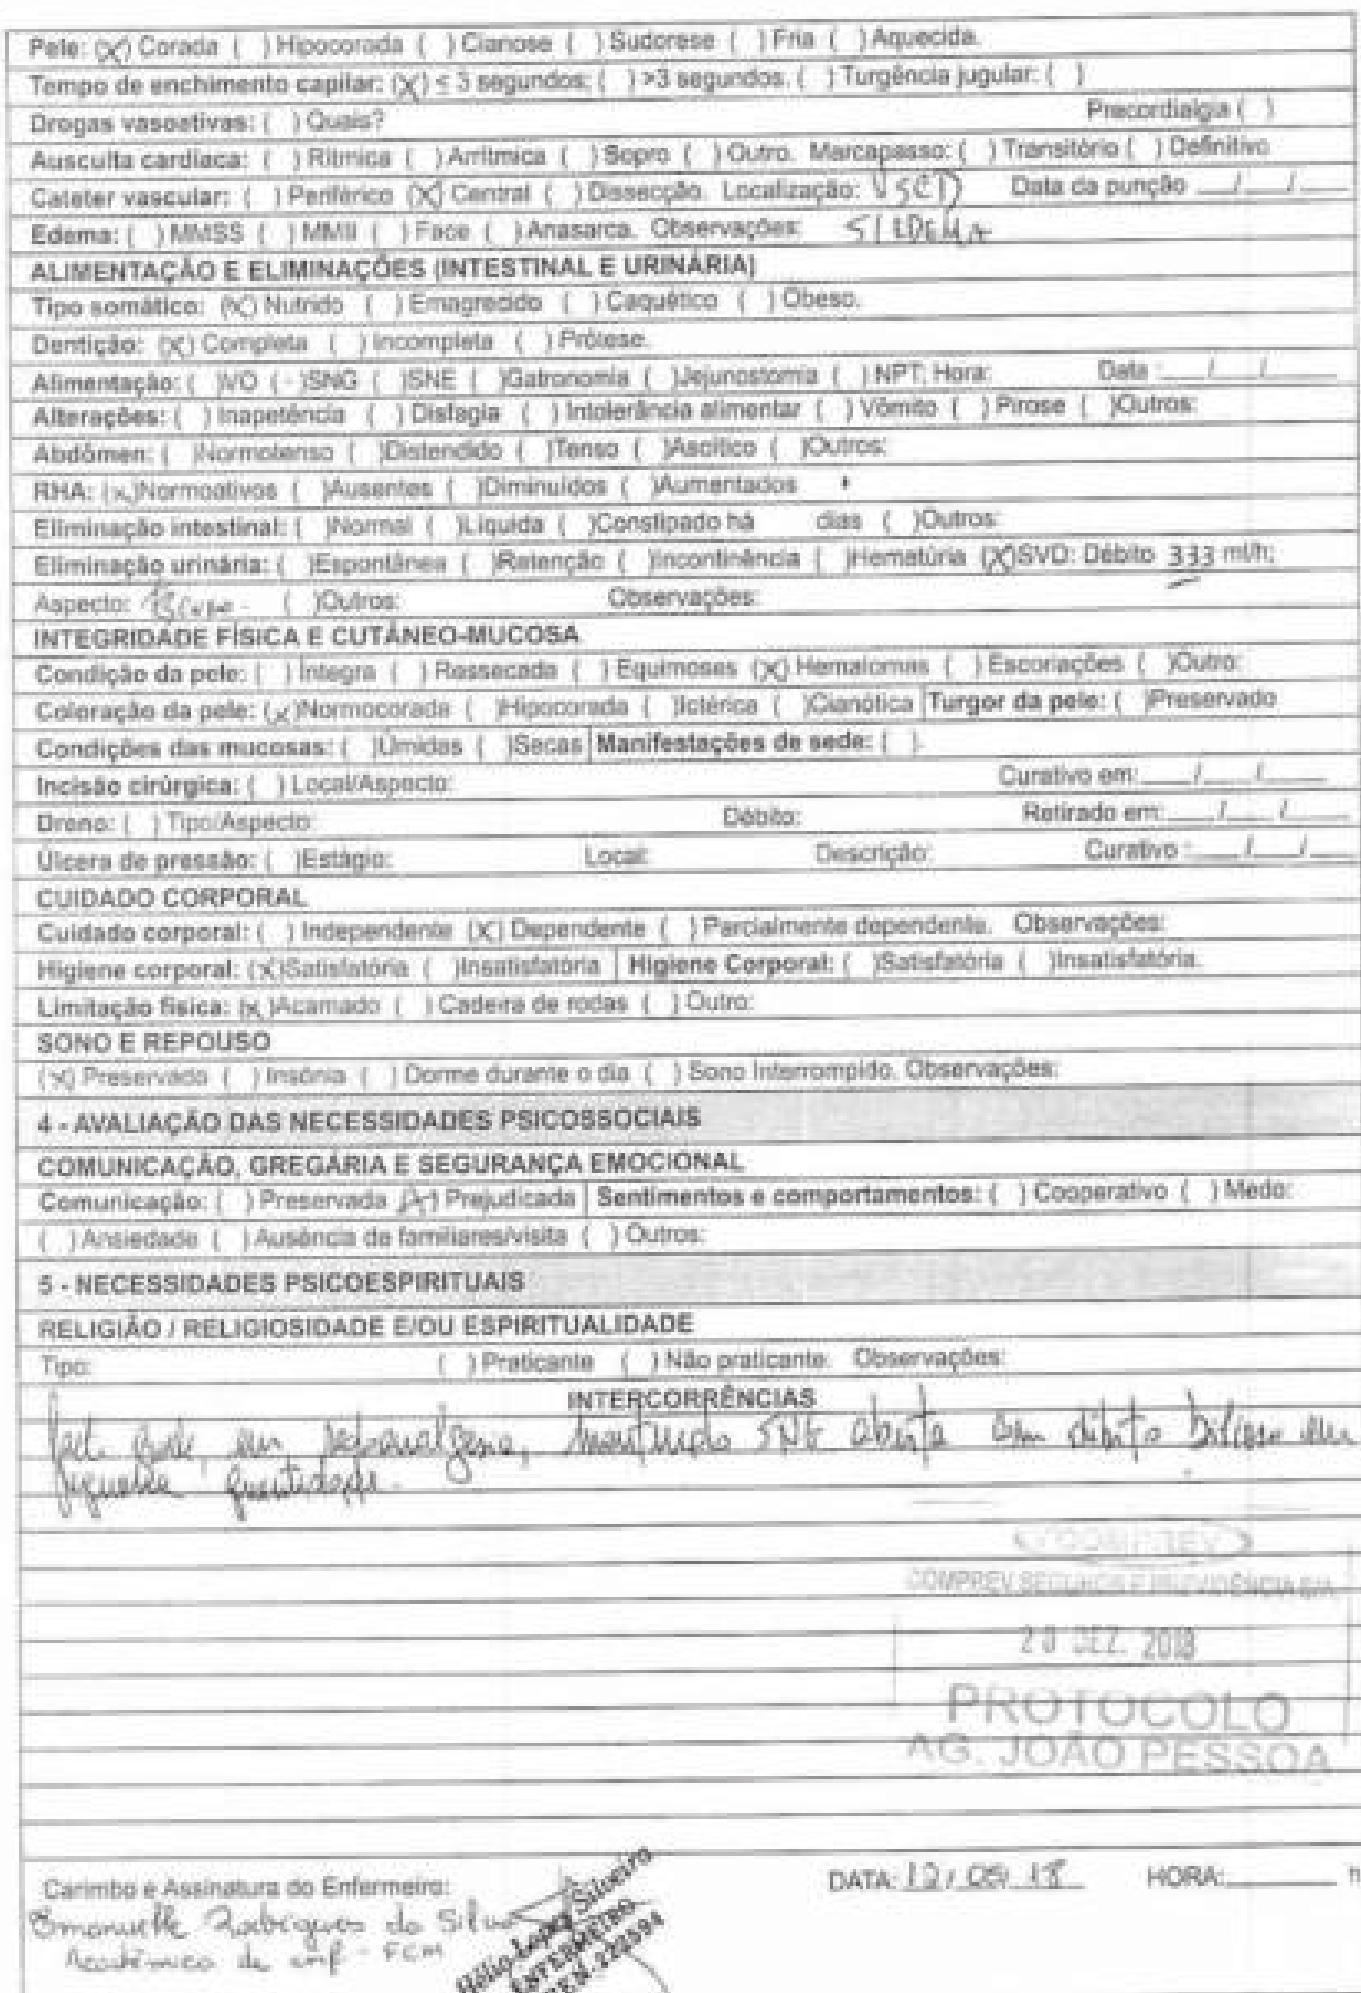 Pele: (X) Corada ( ) Hipocorada ( ) Cianose ( ) Sudorese ( ) Fria ( ) Aquecida.
Tempo de enchimento capilar: (X) ≤ 3 segundos; ( ) >3 segundos. ( ) Turgência jugular: ( )
Drogas vasoativas: ( ) Quais? Precordialgia ( )
Ausculta cardíaca: ( ) Rítmica ( ) Arrítmica ( ) Sopro ( ) Outro. Marcapasso: ( ) Transitório ( ) Definitivo
Cateter vascular: ( ) Periférico (X) Central ( ) Dissecção. Localização: VSCD Data da punção ___/___/___
Edema: ( ) MMSS ( ) MMII ( ) Face ( ) Anasarca. Observações: S/ EDEMA
ALIMENTAÇÃO E ELIMINAÇÕES (INTESTINAL E URINÁRIA)
Tipo somático: (X) Nutrido ( ) Emagrecido ( ) Caquético ( ) Obeso.
Dentição: (X) Completa ( ) Incompleta ( ) Prótese.
Alimentação: ( )VO ( - )SNG ( )SNE ( )Gatronomia ( )Jejunostomia ( ) NPT; Hora: Data : ___/___/___
Alterações: ( ) Inapetência ( ) Disfagia ( ) Intolerância alimentar ( ) Vômito ( ) Pirose ( )Outros:
Abdômen: ( )Normotenso ( )Distendido ( )Tenso ( )Ascítico ( )Outros:
RHA: (x)Normoativos ( )Ausentes ( )Diminuídos ( )Aumentados
Eliminação intestinal: ( )Normal ( )Líquida ( )Constipado há dias ( )Outros:
Eliminação urinária: ( )Espontânea ( )Retenção ( )Incontinência ( )Hematúria (X)SVD: Débito 333 ml/h;
Aspecto: ( )Outros: Observações:
INTEGRIDADE FÍSICA E CUTÂNEO-MUCOSA
Condição da pele: ( ) Íntegra ( ) Ressecada ( ) Equimoses (X) Hematomas ( ) Escoriações ( )Outro:
Coloração da pele: (x)Normocorada ( )Hipocorada ( )Ictérica ( )Cianótica Turgor da pele: ( )Preservado
Condições das mucosas: ( )Úmidas ( )Secas Manifestações de sede: ( ).
Incisão cirúrgica: ( ) Local/Aspecto: Curativo em: ___/___/___
Dreno: ( ) Tipo/Aspecto: Débito: Retirado em: ___/___/___
Úlcera de pressão: ( )Estágio: Local: Descrição: Curativo : ___/___/___
CUIDADO CORPORAL
Cuidado corporal: ( ) Independente (X) Dependente ( ) Parcialmente dependente. Observações:
Higiene corporal: (X)Satisfatória ( )Insatisfatória Higiene Corporal: ( )Satisfatória ( )Insatisfatória.
Limitação física: (x)Acamado ( ) Cadeira de rodas ( ) Outro:
SONO E REPOUSO
(X) Preservado ( ) Insônia ( ) Dorme durante o dia ( ) Sono Interrompido. Observações:
4 - AVALIAÇÃO DAS NECESSIDADES PSICOSSOCIAIS
COMUNICAÇÃO, GREGÁRIA E SEGURANÇA EMOCIONAL
Comunicação: ( ) Preservada (X) Prejudicada Sentimentos e comportamentos: ( ) Cooperativo ( ) Medo:
( ) Ansiedade ( ) Ausência de familiares/visita ( ) Outros:
5 - NECESSIDADES PSICOESPIRITUAIS
RELIGIÃO / RELIGIOSIDADE E/OU ESPIRITUALIDADE
Tipo: ( ) Praticante ( ) Não praticante. Observações:
INTERCORRÊNCIAS
em sedoanalgesia, mantendo SNG aberta com débito bilioso em
pequena quantidade.
COMPREV
COMPREV SEGUROS E PREVIDÊNCIA S/A
20 DEZ. 2018
PROTOCOLO
AG. JOÃO PESSOA
Carimbo e Assinatura do Enfermeiro: DATA: 12/05/18 HORA: ___ h
Emanuelle Rodrigues da Silva
Acadêmica de enf - FCM
Hélio Lopes Silveira
ENFERMEIRO
222594